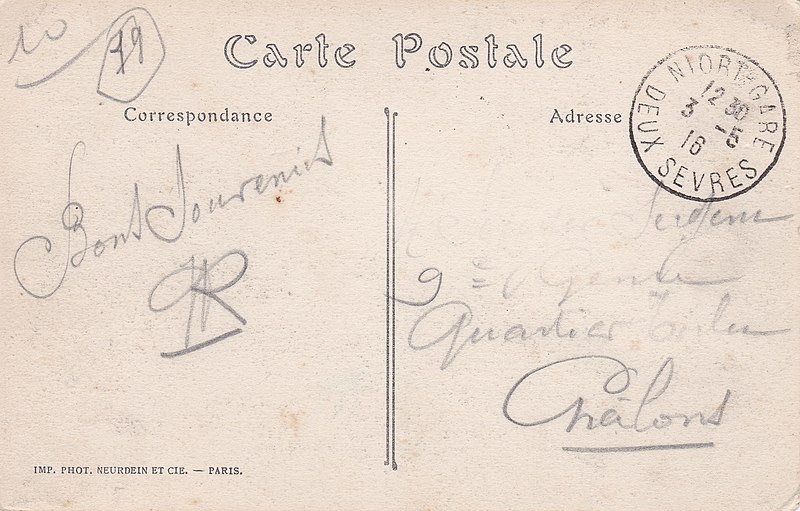 10
79
Carte Postale
Correspondance
Adresse
NIORT-GARE
12 30
3 -5
16
DEUX SEVRES
Bons Souvenirs
9e
Quartier
Châlons
IMP. PHOT. NEURDEIN ET CIE. — PARIS.